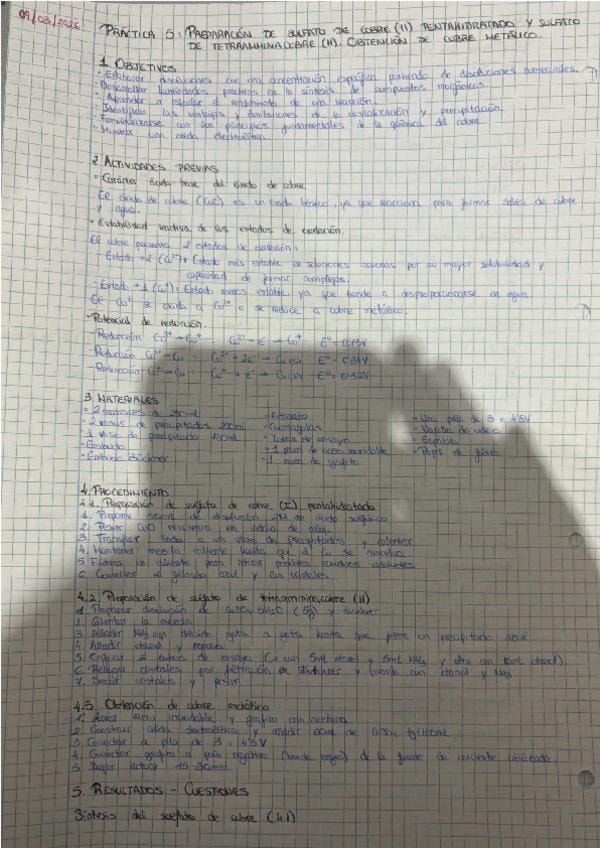 09/03/2026
PRÁCTICA 5: PREPARACIÓN DE SULFATO DE COBRE (II) PENTAHIDRATADO Y SULFATO
DE TETRAAMMINACOBRE (II). OBTENCIÓN DE COBRE METÁLICO.
1. OBJETIVOS
- Elaborar disoluciones con una concentración específica partiendo de disoluciones comerciales.
- Desarrollar habilidades prácticas en la síntesis de compuestos inorgánicos.
- Aprender a calcular el rendimiento de una reacción.
- Identificar las ventajas y limitaciones de la cristalización y precipitación.
- Familiarizarse con los principios fundamentales de la química del cobre.
- una celda electrolítica.
2. ACTIVIDADES PREVIAS
- Carácter ácido-base del óxido de cobre
El óxido de cobre (CuO) es un óxido básico, ya que reacciona para formar sales de cobre
y agua.
- Estabilidad relativa de los estados de oxidación.
El cobre presenta 2 estados de oxidación:
- Estado +2 (Cu²⁺): Estado más estable en soluciones acuosas por su mayor solubilidad y
capacidad de formar complejos.
- Estado +1 (Cu⁺): Estado menos estable, ya que tiende a desproporcionarse en agua.
El Cu⁺ se oxida a Cu²⁺ o se reduce a cobre metálico.
- Potencial de reducción.
- Reducción Cu²⁺ → Cu⁺ Cu²⁺ + e⁻ → Cu⁺ E° = 0.15V
- Reducción Cu²⁺ → Cu Cu²⁺ + 2e⁻ → Cu(s) E° = 0.34V
- Reducción Cu⁺ → Cu Cu⁺ + e⁻ → Cu(s) E° = 0.52V
3. MATERIALES
- 2 matraces de 250ml - Una pila de 3 - 4'5V
- 2 vasos de precipitados 250ml - Varilla de vidrio
- 1 vaso de precipitado 100ml - Tubos de ensayo - Espátula
- Embudo - 1 de acero inoxidable - Papel de filtro
- Embudo Büchner - 1 de grafito
4. PROCEDIMIENTO
4.1. Preparación de sulfato de cobre (II) pentahidratado
1. Preparar disolución 2M de ácido sulfúrico
2. Pesar CuO necesario en vidrio de reloj.
3. Transferir a un vaso de precipitados y calentar
4. Mantener mezcla caliente hasta que el Cu se
5. Filtrar en caliente para retirar posibles residuos insolubles
6. el filtrado azul y los cristales.
4.2. Preparación de sulfato de tetraamminacobre (II)
1. Preparar disolución de CuSO₄·5H₂O (5g) y disolver
2. Calentar la mezcla
3. Añadir NH₃ gota a gota hasta que forme un precipitado azul
4. Añadir etanol y reposo
5. Enfriar 2 tubos de ensayo (1 con 5ml etanol y 5ml NH₃ y otro con 10ml etanol)
6. Recoger cristales por filtración en Büchner y lavado con etanol y NH₃
7. Secar cristales y pesar
4.3. Obtención de cobre metálico
1. acero inoxidable y grafito con acetona
2. Construir celda electrolítica y añadir
3. Conectar a pila de 3 - 4'5V
4. Conectar grafito a polo de la fuente de corriente utilizada
5. Dejar actuar 15-30min
5. RESULTADOS - CUESTIONES
Síntesis del sulfato de cobre (4.1)